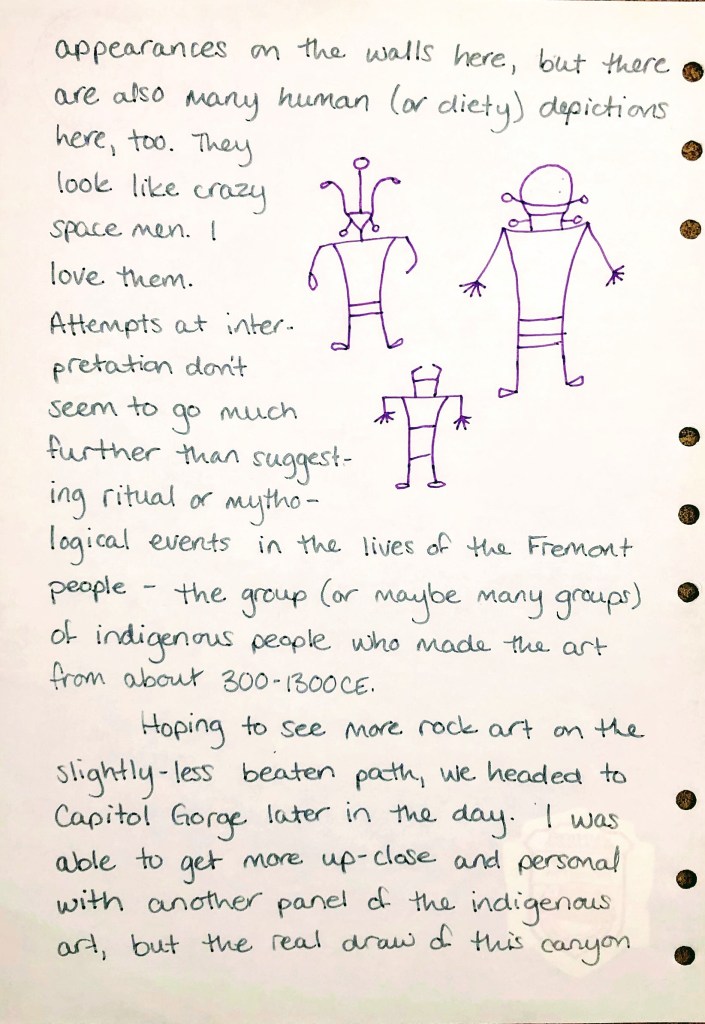 appearances on the walls here, but there
are also many human (or diety) depictions
here, too. They
look like crazy
space men. I
love them.
Attempts at inter-
pretation don't
seem to go much
further than suggest-
ing ritual or mytho-
logical events in the lives of the Fremont
people - the group (or maybe many groups)
of indigenous people who made the art
from about 300-1300CE.
Hoping to see more rock art on the
slightly-less beaten path, we headed to
Capitol Gorge later in the day. I was
able to get more up-close and personal
with another panel of the indigenous
art, but the real draw of this canyon